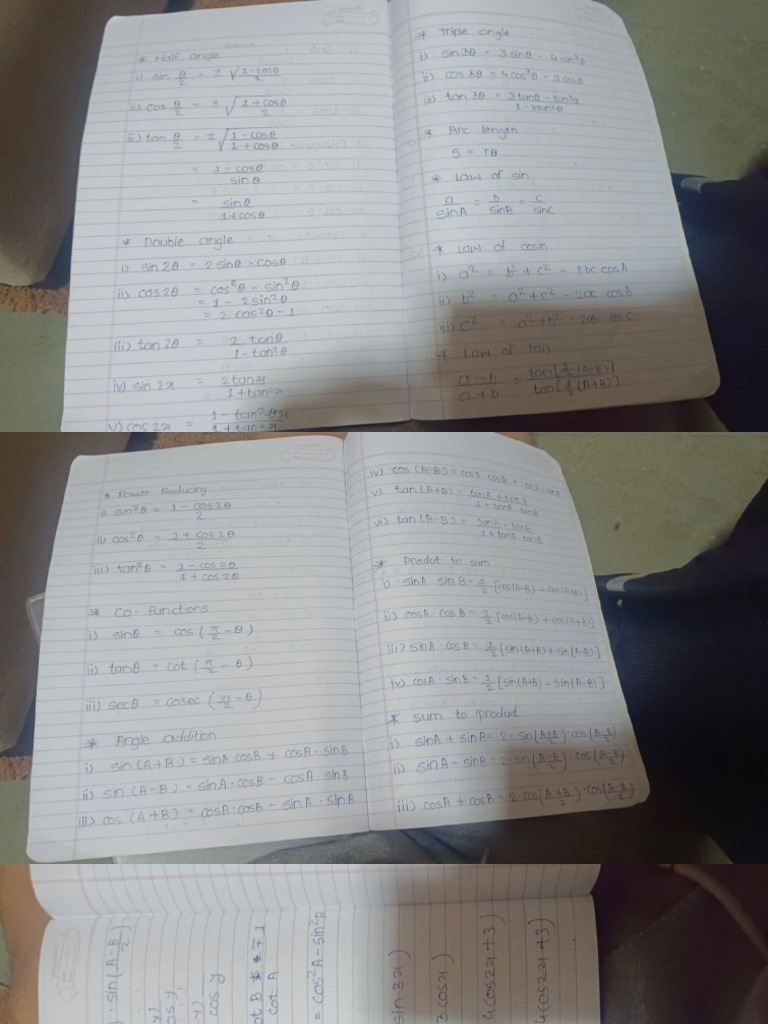 * Half angle
i) sin θ/2 = ± √(1-cosθ/2)
ii) cos θ/2 = ± √(1+cosθ/2)
iii) tan θ/2 = ± √(1-cosθ/1+cosθ)
= 1-cosθ/sinθ
= sinθ/1+cosθ
* Double angle
i) sin 2θ = 2 sinθ · cosθ
ii) cos 2θ = cos²θ - sin²θ
= 1 - 2 sin²θ
= 2 cos²θ - 1
iii) tan 2θ = 2 tanθ/1-tan²θ
iv) sin 2x = 2tanx/1+tan²x
v) cos 2x = 1-tan²x/1+tan²x
* Triple angle
i) sin 3θ = 3 sinθ - 4 sin³θ
ii) cos 3θ = 4 cos³θ - 3 cosθ
iii) tan 3θ = 3tanθ - tan³θ/1-3tan²θ
* Arc length
S = rθ
* Law of sin
a/sinA = b/sinB = c/sinC
* Law of cosin
i) a² = b² + c² - 2bc cosA
ii) b² = a² + c² - 2ac cosB
iii) c² = a² + b² - 2ab cosC
* Law of tan
a-b/a+b = tan[½(A-B)]/tan[½(A+B)]
* Power Reducing
i) sin²θ = 1-cos2θ/2
ii) cos²θ = 1+cos2θ/2
iii) tan²θ = 1-cos2θ/1+cos2θ
* Co-functions
i) sinθ = cos(π/2 - θ)
ii) tanθ = cot(π/2 - θ)
iii) secθ = cosec(π/2 - θ)
* Angle addition
i) sin (A+B) = sinA·cosB + cosA·sinB
ii) sin (A-B) = sinA·cosB - cosA·sinB
iii) cos (A+B) = cosA·cosB - sinA·sinB
iv) cos (A-B) = cosA·cosB + sinA·sinB
v) tan (A+B) = tanA + tanB/1-tanA tanB
vi) tan (A-B) = tanA - tanB/1+tanA tanB
* Produt to sum
i) sinA · sinB = ½ [cos(A-B) - cos(A+B)]
ii) cosA · cosB = ½ [cos(A-B) + cos(A+B)]
iii) sinA · cosB = ½ [sin(A+B) + sin(A-B)]
iv) cosA · sinB = ½ [sin(A+B) - sin(A-B)]
* sum to produt
i) sinA + sinB = 2·sin(A+B/2)·cos(A-B/2)
ii) sinA - sinB = 2·sin(A-B/2)·cos(A-B/2)
iii) cosA + cosA = 2·cos(A+B/2)·cos(A-B/2)
· sin(A-B/2)
cos y
cot B ∓ 1
cot A
= cos²A - sin²B
sin 3x)
3 cosx)
4cos2x+3)
4cos2x+3)